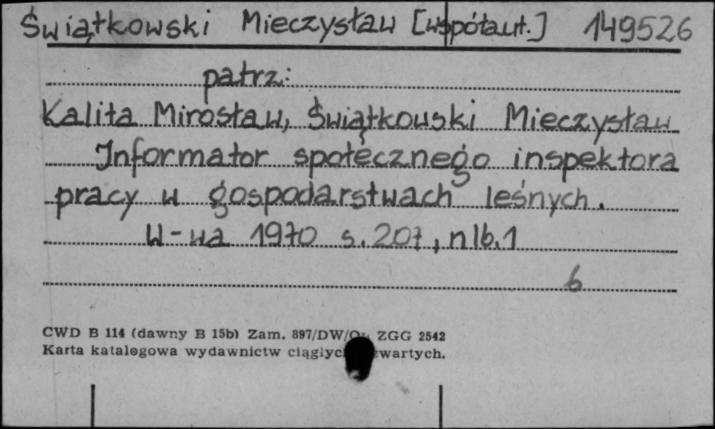 Świątkowski Mieczysław [współaut.] 149526
patrz:
Kalita Mirosław, Świątkowski Mieczysław
Informator społecznego inspektora
pracy w gospodarstwach leśnych.
W-wa 1970 s. 207, nlb. 1
6
CWD B 114 (dawny B 15b) Zam. 897/DW/ ZGG 2542
Karta katalogowa wydawnictw